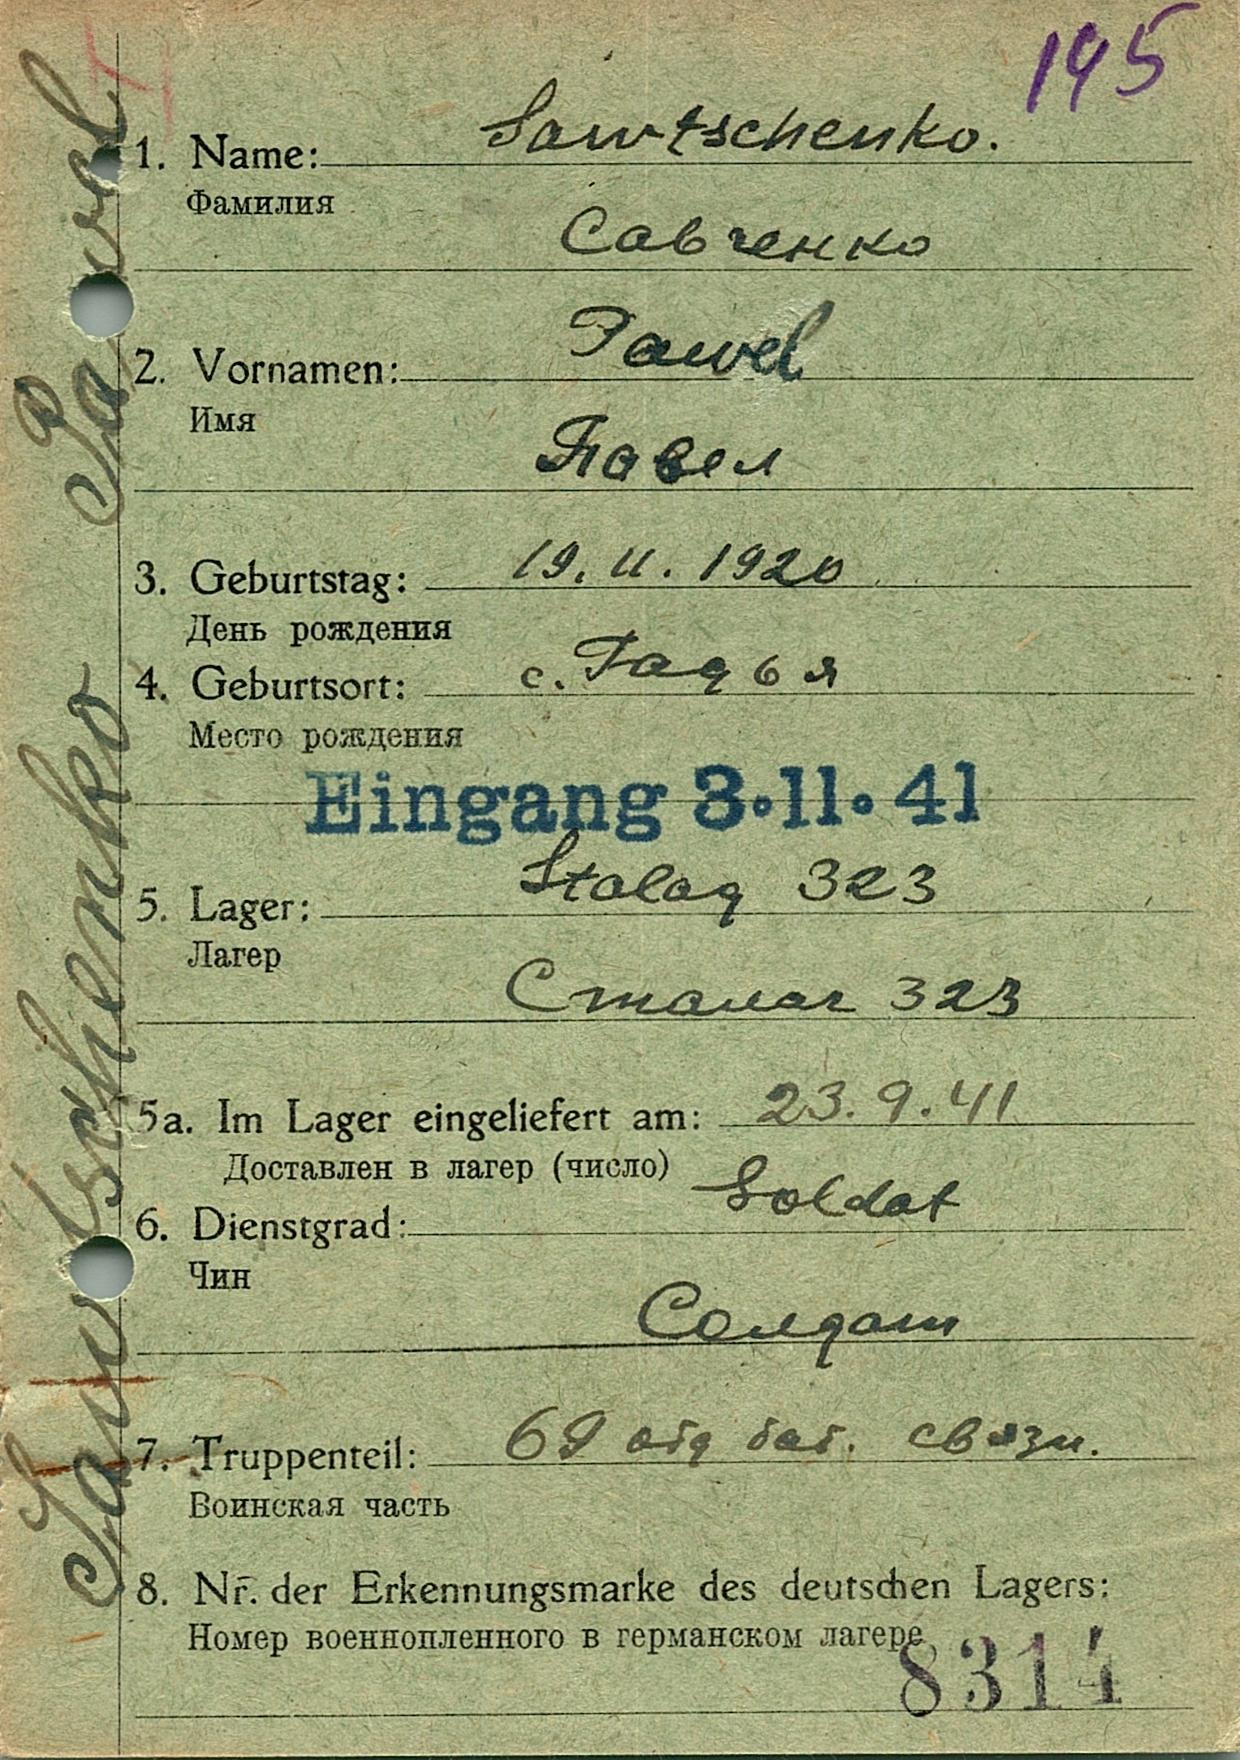 195
1. Name: Sawtschenko.
Фамилия
Савченко
2. Vornamen: Pawel
Имя
Павел
3. Geburtstag: 19. 11. 1920
День рождения
4. Geburtsort: с. Гадья
Место рождения
Eingang 3.11.41
5. Lager: Stalag 323
Лагер
Сталаг 323
5a. Im Lager eingeliefert am: 23.9.41
Доставлен в лагер (число)
6. Dienstgrad: Soldat
Чин
Солдат
7. Truppenteil: 69 отд бат. связи.
Воинская часть
8. Nr. der Erkennungsmarke des deutschen Lagers:
Номер военнопленного в германском лагере
8314
Sawtschenko Pawel